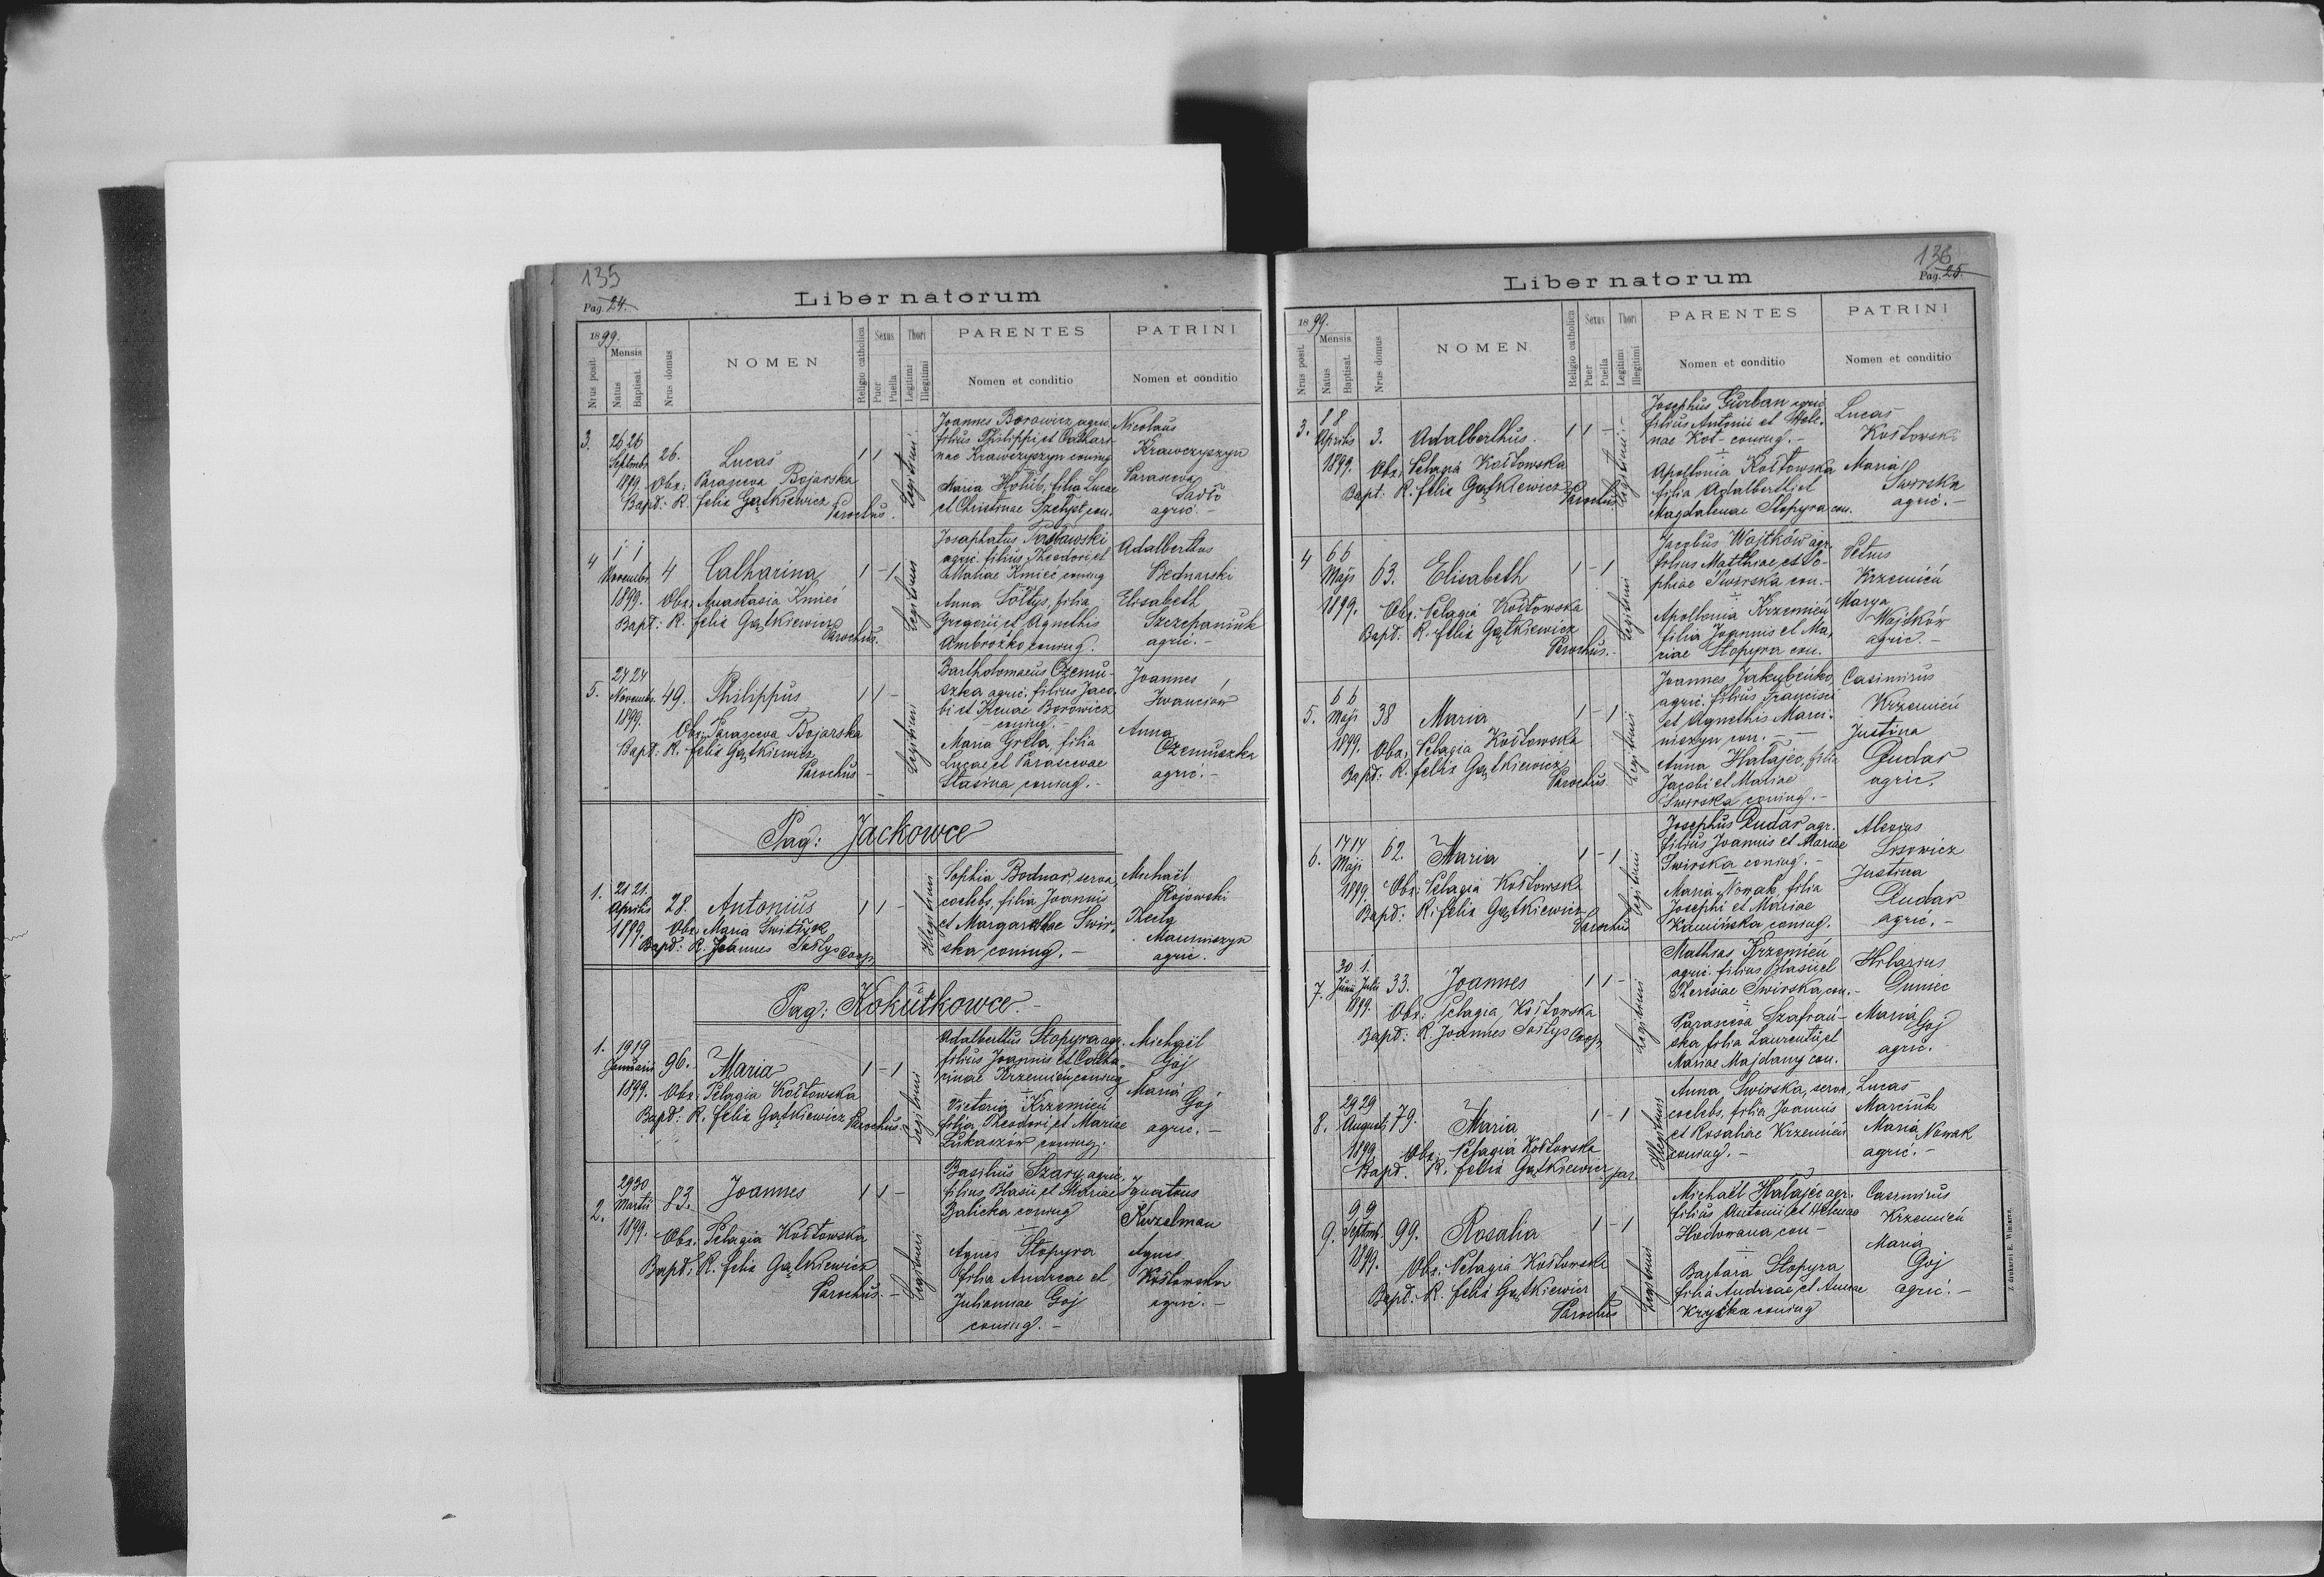 135
Pag. 24.
Liber natorum
1899.
Nrus posit.
Mensis
Natus
Baptisat.
Nrus domus
NOMEN
Religio catholica
Sexus
Puer
Puella
Thori
Legitimi
Illegitimi
PARENTES
Nomen et conditio
PATRINI
Nomen et conditio
3.
26 26
Septmbr.
1899.
26.
Lucas
1 1
Obs: Parasceva Bojarska
Bapt: R. Felix Gątkiewicz
Parochus.
Legitimi
Joannes Borowicz agric.
filius Philippi et Cathari
nae Krawczyszyn coniug
Maria Hołub, filia Lucae
et Christinae Szetyst, con.
Nicolaus
Krawczyszyn
Parasceva
Sadło
agric. -
4
1 1
Novembr.
1899.
4
Catharina
1 - 1
Obs: Anastasia Kmieć
Bapt: R. Felix Gątkiewicz
Parochus.
Legitimi
Josaphatus Pasławski
agric. filius Theodori et
Mariae Kmieć coniug
Anna Sołtys, filia
Gregorii et Agnethis
Ambrożko coniug.
Adalbertus
Bednarski
Elisabeth
Szczepaniuk
agric. -
5.
24 24
Novembr.
1899.
49.
Philippus
1 1 -
Obs: Parasceva Bojarska
Bapt: R. Felix Gątkiewicz
Parochus -
Legitimi
Bartholomaeus Ozemu-
szka agric. filius Jaco-
bi et Irenae Borowicz
coniug -
Maria Greła, filia
Lucae et Parascevae
Stasina coniug. -
Joannes
Iwanciów
Anna
Ozemuszka
agric. -
Pag: Jackowce
1.
21 21.
Aprilis
1899.
28.
Antonius
1 1 -
Obs: Maria Switłyk
Bapt: R. Joannes Sołtys Coop.
Illegitimus
Sophia Bodnar, serva,
coelebs, filia Joannis
et Margarethae Swir-
ska coniug. -
Michaël
Rojowski
Thecla
agric.
Pag: Kokutkowce. -
1.
19 19
Januarii
1899.
96.
Maria
1 - 1
Obs: Pelagia Kosłowska
Bapt: R. Felix Gątkiewicz Parochus.
Legitimi
Adalbertus Stopyra agr.
filius Joannis et Catha-
rinae Krzemień, coniug
Victoria Krzemień,
filia Theodori et Mariae
Łukaszów coniug.
Michaël
Goj
Maria
Goj
agric. -
2.
29 30
Martii
1899.
83.
Joannes
1 1 -
Obs. Pelagia Kosłowska
Bapt: R. Felix Gątkiewicz
Parochus. -
Legitimi
Basilius Szary, agric.
filius Blasii et Mariae
Balicka coniug
Agnes Stopyra
filia Andreae et
Juliannae Goj
coniug. -
Ignatius
Kuzelman
Agnes
Kosłowska
agric. -
136
Pag. 25.
Liber natorum
1899.
Nrus posit.
Mensis
Natus
Baptisat.
Nrus domus
NOMEN
Religio catholica
Sexus
Puer
Puella
Thori
Legitimi
Illegitimi
PARENTES
Nomen et conditio
PATRINI
Nomen et conditio
3.
1 8
Aprilis
1899.
3.
Adalberthus.
1 1 -
Obs: Pelagia Kosłowska
Bapt: R. Felix Gątkiewicz
Parochus
Legitimi. -
Josephus Gurban agric.
filius Antonii et Hele-
nae Kot - coniug. -
Apollonia Kosłowska
filia Adalberthi et
Magdalenae Stopyra con.
Lucas
Kosłowski
Maria
Swirska
agric. -
4
6 6
Maji
1899.
63.
Elisabeth
1 - 1
Obs: Pelagia Kosłowska
Bapt. R. Felix Gątkiewicz
Parochus. -
Legitimi
Jacobus Wojtków agr.
filius Matthiae et So-
phiae Swirska con. -
Apollonia Krzemień
filia Joannis et Ma-
riae Stopyra con.
Petrus
Krzemień
Marya
Wojtków
agric. -
5.
6 6
Maji
1899.
38
Maria
1 - 1
Obs: Pelagia Kosłowska
Bapt: R. Felix Gątkiewicz
Parochus
Legitimi
Joannes Jakubeńko
agric. filius Francisci
et Agnethis Marci-
niszyn con. -
Anna Hałajec, filia
Jacobi et Mariae
Swirska coniug. -
Casimirus
Krzemień
Justina
Dudar
agric.
6.
17 17
Maji
1899
62.
Maria
1 - 1
Obs: Pelagia Kosłowska
Bapt: R. Felix Gątkiewicz
Parochus
Legitimi
Josephus Dudar agr.
filius Joannis et Mariae
Swirska coniug. -
Maria Nowak, filia
Josephi et Mariae
Kamińska coniug.
Alexius
Lisowicz
Justina
Dudar
agric. -
7.
30 1.
Junii Julii
1899.
33.
Joannes
1 1 -
Obs: Pelagia Kosłowska
Bapt: R. Joannes Sołtys Coop.
Legitimi
Mathias Krzemień
agric. filius Blasii et
Theresiae Swirska, con. -
Parasceva Szafrań-
ska filia Laurentii et
Mariae Majdany con.
Hilarius
Duniec
Maria
Goj
agric.
8.
29 29
Augusti
1899
79.
Maria
1 - 1
Obs: Pelagia Kosłowska
Bapt. R. Felix Gątkiewicz par.
Illegitimus
Anna Swirska, serva,
coelebs, filia Joannis
et Rosaliae Krzemień
coniug. -
Lucas
Marciuk
Maria Nowak
agric. -
9.
9 9
Septmb.
1899.
99.
Rosalia
1 - 1
Obs: Pelagia Kosłowska
Bapt: R. Felix Gątkiewicz
Parochus
Legitimi
Michaël Hałajec agr.
filius Antonii et Helenae
Hodowana con -
Barbara Stopyra
filia Andreae et Annae
coniug
Casimirus
Krzemień
Maria
Goj
agric. -
Z drukarni E. Winiarza.